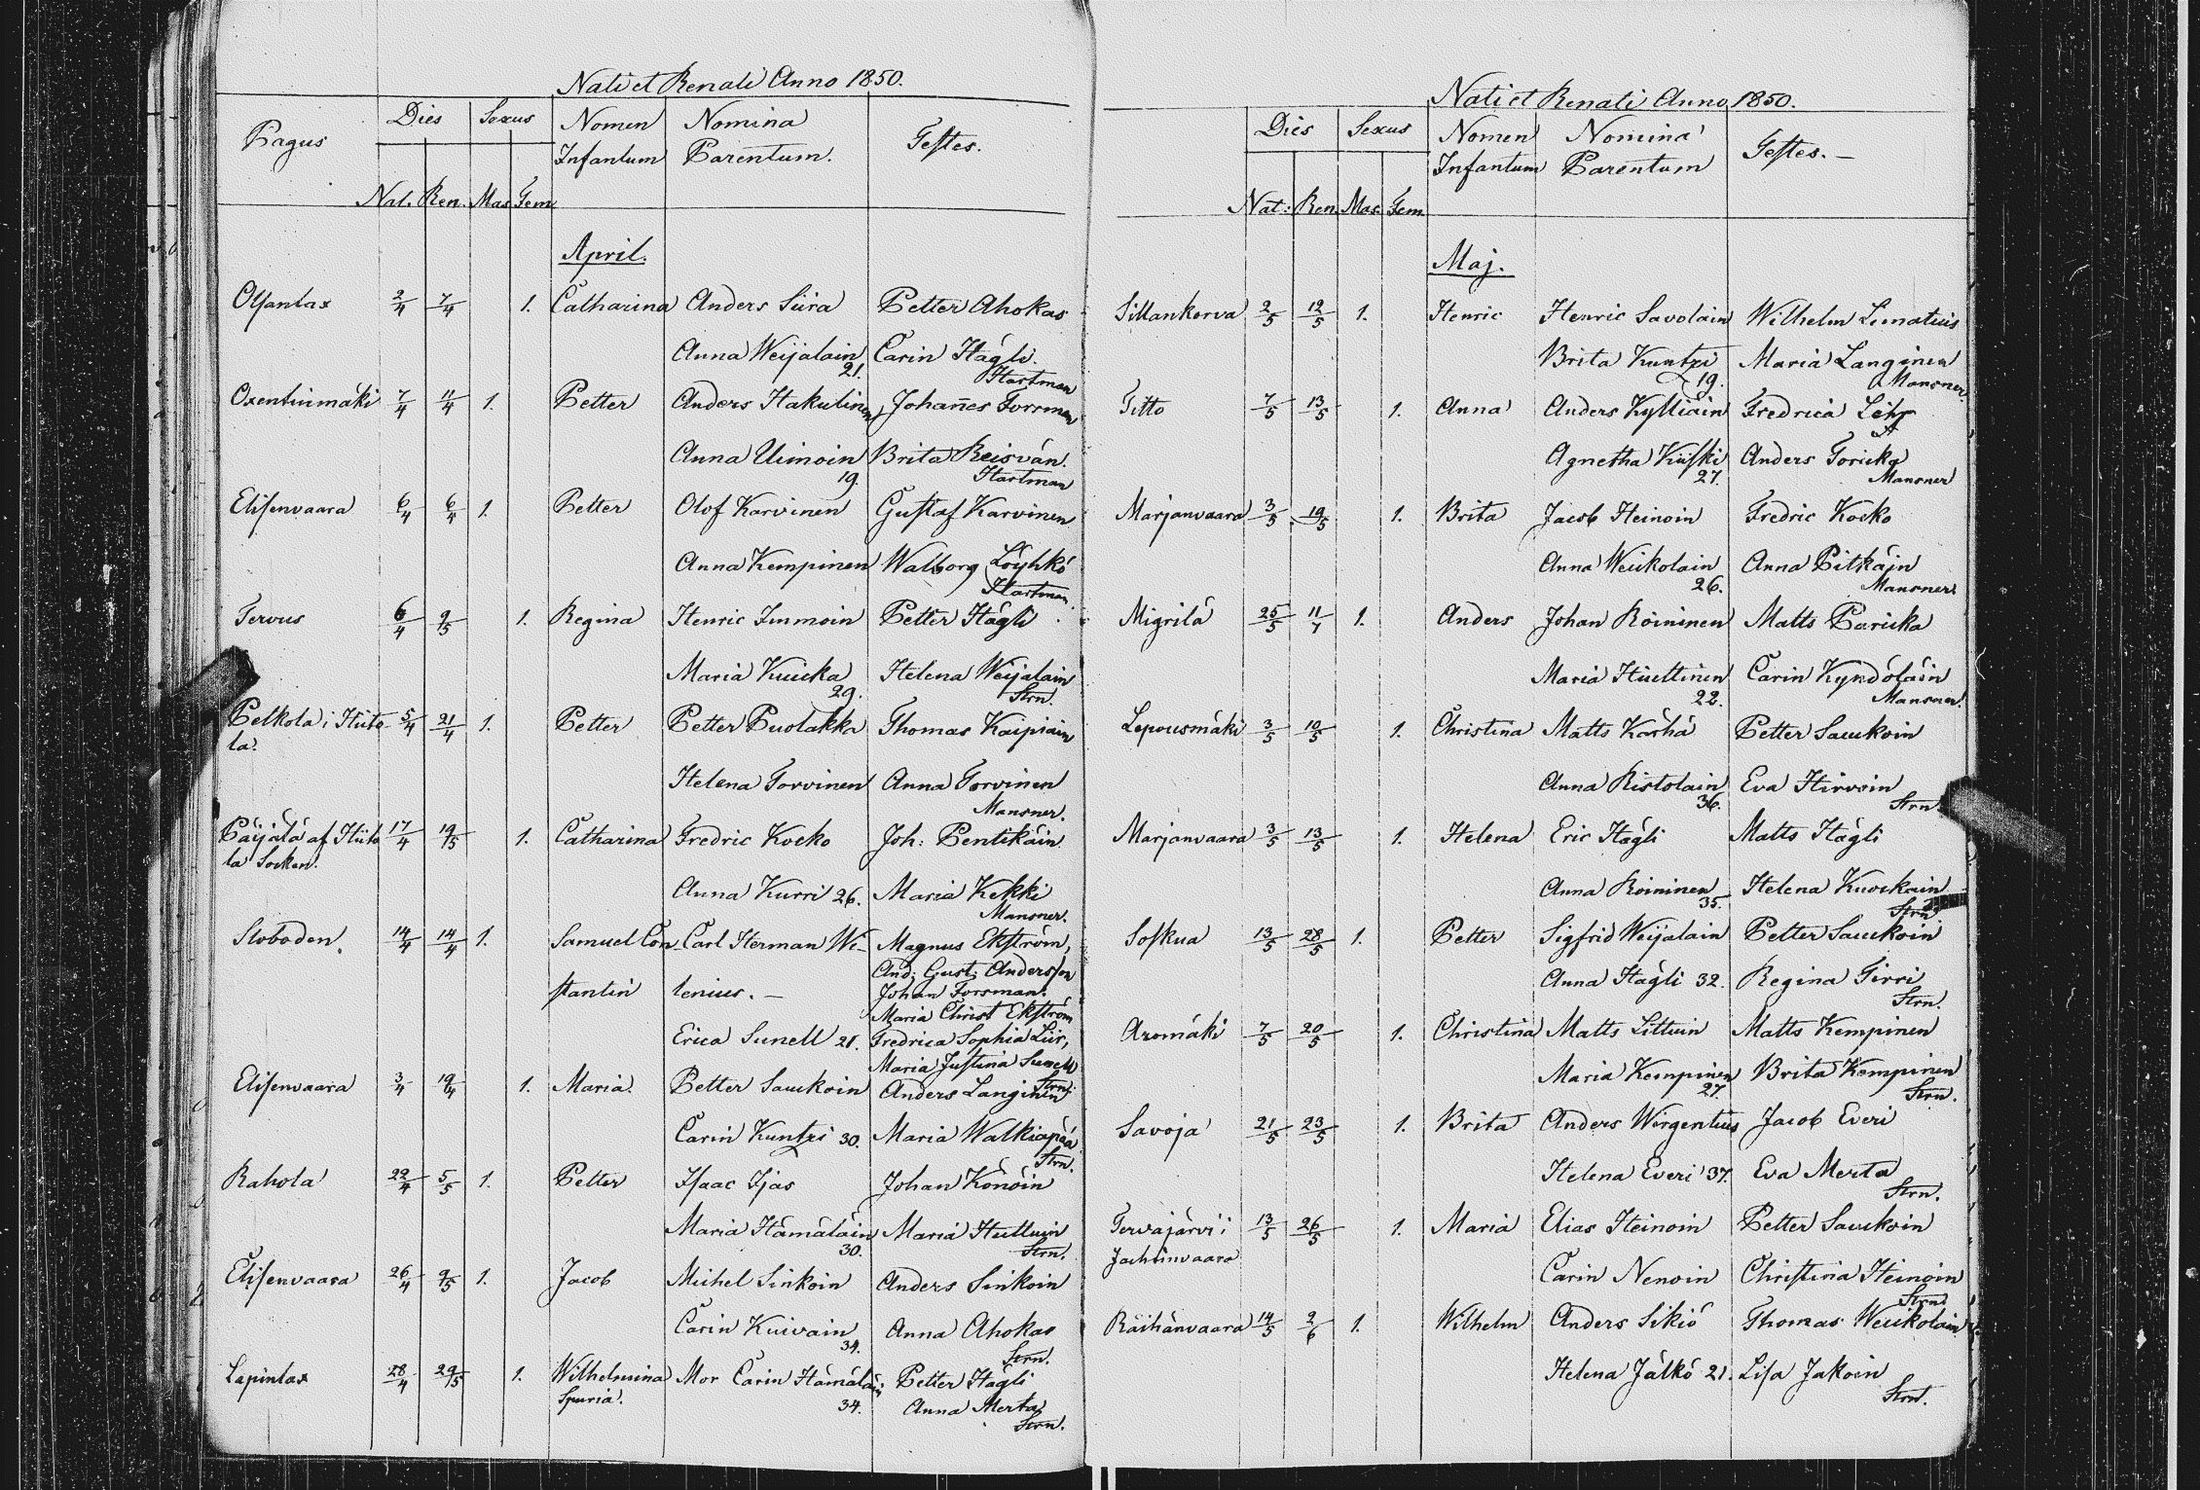 Nati et Renati Anno 1850.
Pagus Dies Sexus Nomen Nomina Testes.
Infantum Parentum.
Nat. Ren. Mas Fem
April.
2/4 7/4 1. Catharina Anders Siira Petter Ahokas
Anna Weijalain Carin Hägli.
21. Hartman
Oxentuinmäki 7/4 11/4 1. Petter Anders Hakulinen Johañes Forsman
Anna Uimoin Brita Reisvän.
19. Hartman
Elisenvaara 6/4 6/4 1. Petter Olof Karvinen Gustaf Karvinen
Anna Kempinen Walborg Löyhkö
Hartman.
Tervus 6/4 9/5 1. Regina Henric Immoin Petter Hägli
Maria Kuicka Helena Weijalain
29. Strn.
Pelkola i Hiito- 5/4 21/4 1. Petter Petter Puolakka Thomas Kaipiain
la.
Helena Torvinen Anna Torvinen
Mansner.
Päijälä af Hiito 17/4 19/5 1. Catharina Fredric Kocko Joh: Pentikäin
la Socken.
Anna Kurri 26. Maria Kekki
Mansner.
Sloboden. 14/4 14/4 1. Samuel Con- Carl Herman We- Magnus Ekström,
And: Gust: Andersson
stantin lenius. — Johan Forsman.
Maria Christ Ekström
Erica Sunell 21. Fredrica Sophia
Maria Justina Sunell
Strn.
Elisenvaara 3/4 19/4 1. Maria. Petter Saukoin Anders Langinen
Carin Kuntzi 30. Maria Walkiapää
Strn.
Rahola 22/4 5/5 1. Petter Isaac Ijas Johan Könöin
Maria Hämäläin Maria Huttuin
30. Strn.
Elisenvaara 26/4 9/5 1. Jacob Michel Sinkoin Anders Sinkoin
Carin Kuivain Anna Ahokas
34. Strn.
Lapinlax 28/4 29/5 1. Wilhelmina Mor Carin Hämäläin. Petter Hägli
Spuria. 34. Anna Merta
Strn.
Nati et Renati Anno 1850.
Dies Sexus Nomen Nomina Testes. —
Infantum Parentum
Nat: Ren. Mas. Fem
Maj.
Sillankorva 2/5 12/5 1. Henric Henric Savolain Wilhelm Limatius
Brita Kuntzi Maria Langinen
19. Mansner.
Titto 7/5 13/5 1. Anna Anders Kylliäin Fredrica
Agnetha Kiiski Anders
27. Mansner
Marjanvaara 3/5 19/5 1. Brita Jacob Heinoin Fredric Kocko
Anna Weikolain Anna Pitkäin
26. Mansner.
Migrilä 25/5 11/7 1. Anders Johan Roininen Matts Paricka
Maria Huittinen Carin Kyndöläin
22. Mansner.
Lepousmäki 3/5 10/5 1. Christina Matts Kärhä Petter Saukoin
Anna Ristolain Eva Hirvoin
36. Strn.
Marjanvaara 3/5 13/5 1. Helena Eric Hägli Matts Hägli
Anna Roininen Helena Kuockain
35. Strn
Soskua 13/5 28/5 1. Petter Sigfrid Weijalain Petter Saukoin
Anna Hägli 32. Regina Tirri
Strn.
Aromäki 7/5 20/5 1. Christina Matts Littuin Matts Kempinen
Maria Kempinen Brita Kempinen
27. Strn.
Savoja 21/5 23/5 1. Brita Anders Wirgentius Jacob Everi
Helena Everi 37. Eva Merta
Strn.
Tervajärvi i 13/5 26/5 1. Maria Elias Heinoin Petter Saukoin
Jachinvaara
Carin Nenoin Christina Heinoin
Strn
Räihänvaara 14/5 2/6 1. Wilhelm Anders Sikiö Thomas Weikolain
Helena Jälkö 21. Lisa Jakoin
Strn.